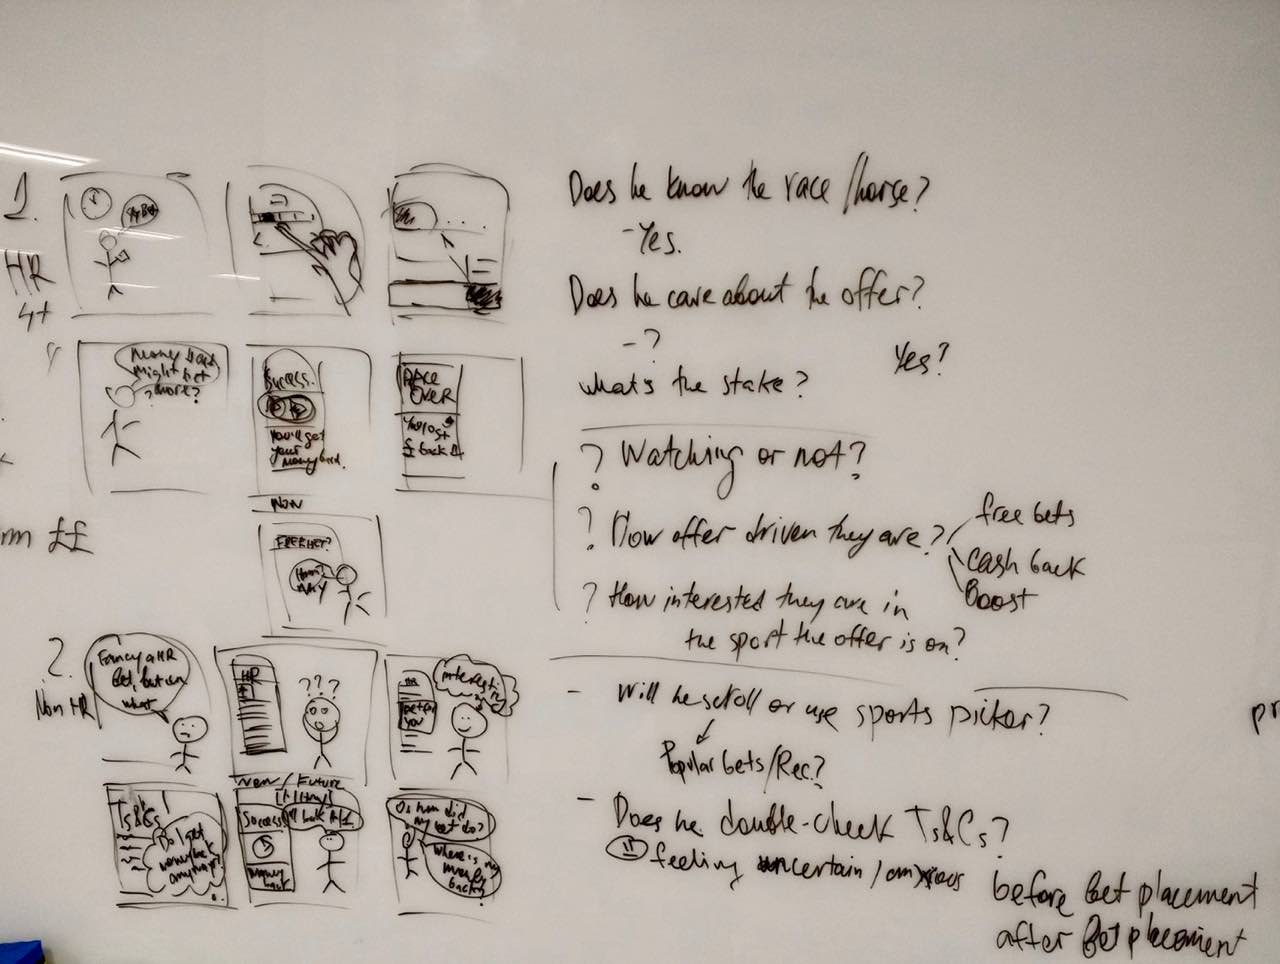 1.
HR
4+
My Bet
Money back
might bet
more?
Success.
You'll get
your
money back.
RACE
OVER
You lost
£ back
Now
FREE BET?
££
2.
Non HR
Fancy a HR
bet, but on
what
HR
???
HR
interesting
Now / Future
Ts&Cs
Do I get
money back
anyway?
Success
money
back
Oh how did
my
bet do?
Where is my
money
back?
Does he know the race/horse?
- Yes.
Does he care about the offer?
- ?
Yes?
what's the stake?
? Watching or not?
? How offer driven they are?
free bets
cash back
Boost
? How interested they are in
the sport the offer is on?
- Will he scroll or use sports picker?
Popular bets/Rec.?
- Does he double-check Ts&Cs?
feeling uncertain / anxious
before bet placement
after Bet placement
pr